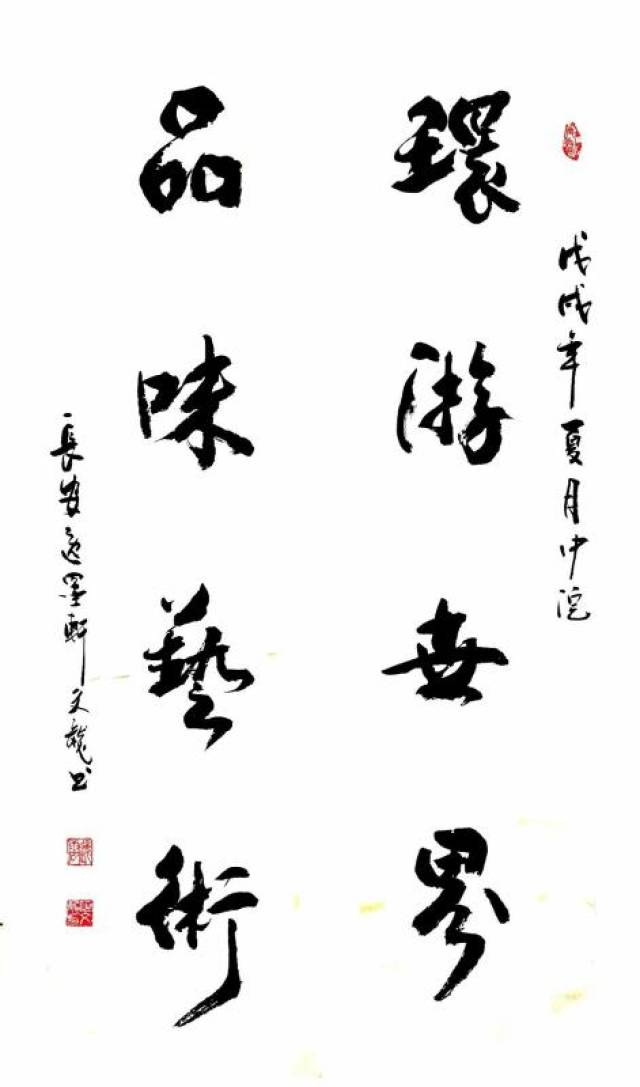 戊戌年夏月中浣
環游世界
品味藝術
長安逸墨軒文龍书